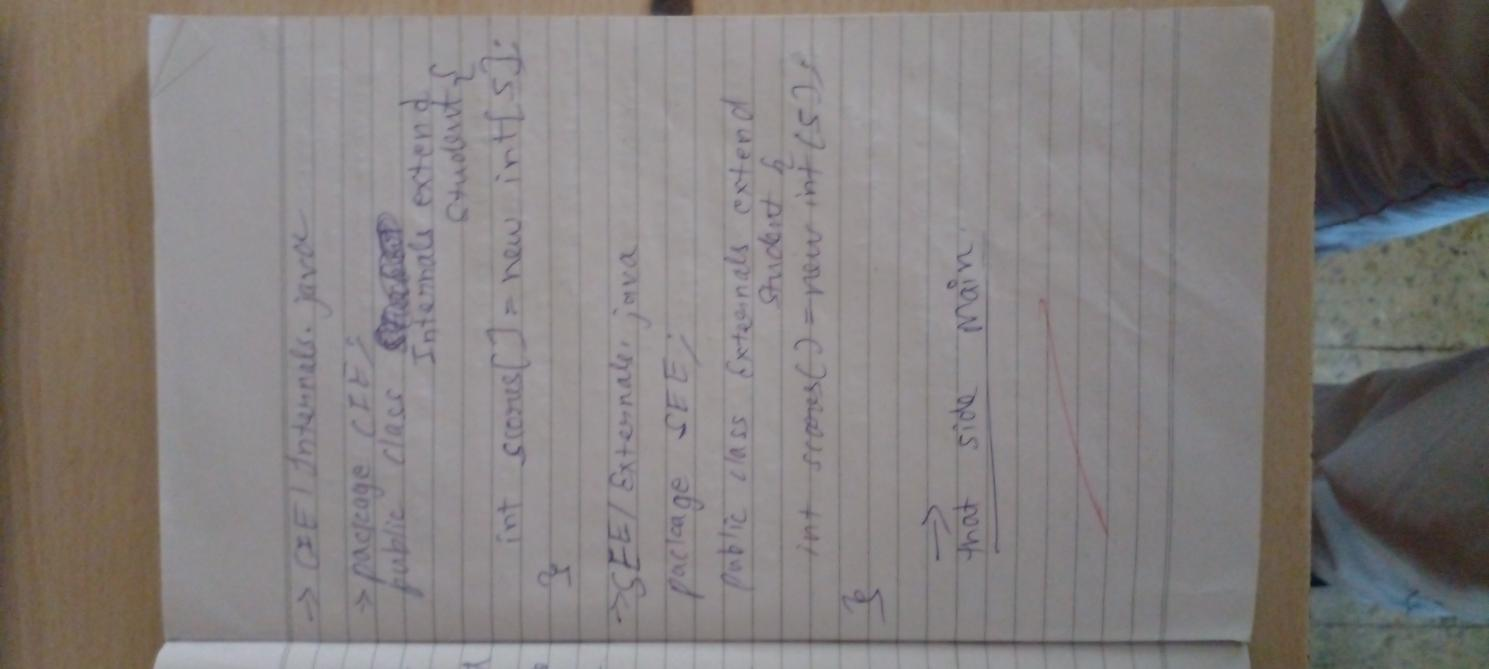 → CIE/Internals.java
→ package CIE;
public class
Internals extend
Student {
int scores[] = new int[5];
}
→ SEE/Externals.java
package SEE;
public class Externals extend
Student {
int scores[] = new int[5];
}
→
that side Main.